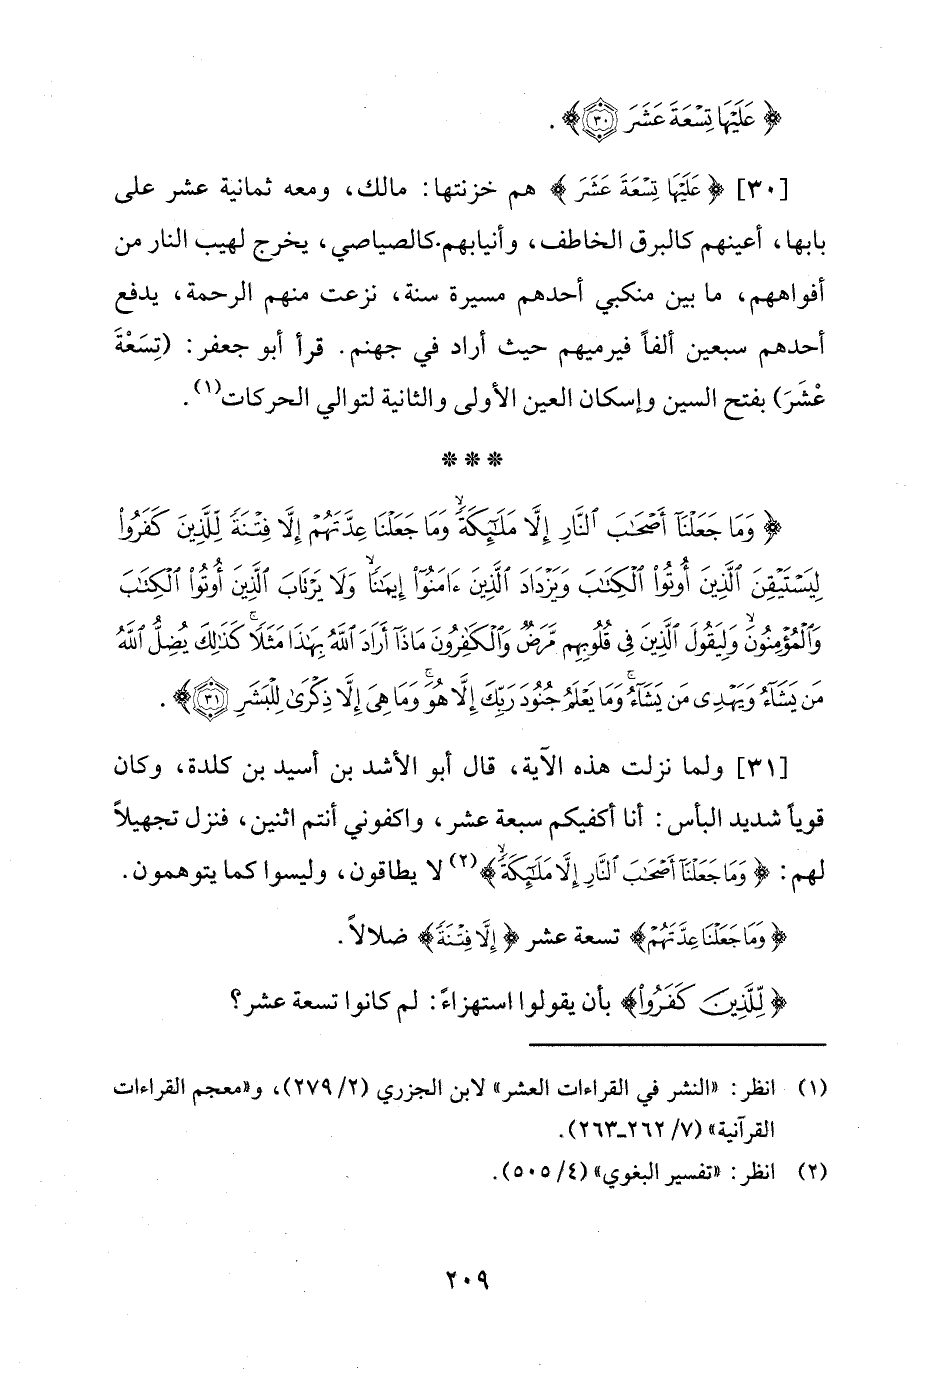 ﴿ عَلَيْهَا تِسْعَةَ عَشَرَ ﴿٣٠﴾ ﴾ .
[٣٠] ﴿ عَلَيْهَا تِسْعَةَ عَشَرَ ﴾ هم خزنتها: مالك، ومعه ثمانية عشر على
بابها، أعينهم كالبرق الخاطف، وأنيابهم كالصياصي، يخرج لهيب النار من
أفواههم، ما بين منكبي أحدهم مسيرة سنة، نزعت منهم الرحمة، يدفع
أحدهم سبعين ألفاً فيرميهم حيث أراد في جهنم. قرأ أبو جعفر: (تِسَعْةَ
عْشَرَ) بفتح السين وإسكان العين الأولى والثانية لتوالي الحركات(١).
***
﴿ وَمَا جَعَلْنَآ أَصْحَٰبَ ٱلنَّارِ إِلَّا مَلَٰٓئِكَةً ۙ وَمَا جَعَلْنَا عِدَّتَهُمْ إِلَّا فِتْنَةً لِّلَّذِينَ كَفَرُوا۟
لِيَسْتَيْقِنَ ٱلَّذِينَ أُوتُوا۟ ٱلْكِتَٰبَ وَيَزْدَادَ ٱلَّذِينَ ءَامَنُوٓا۟ إِيمَٰنًا ۙ وَلَا يَرْتَابَ ٱلَّذِينَ أُوتُوا۟ ٱلْكِتَٰبَ
وَٱلْمُؤْمِنُونَ ۙ وَلِيَقُولَ ٱلَّذِينَ فِى قُلُوبِهِم مَّرَضٌ وَٱلْكَٰفِرُونَ مَاذَآ أَرَادَ ٱللَّهُ بِهَٰذَا مَثَلًا ۚ كَذَٰلِكَ يُضِلُّ ٱللَّهُ
مَن يَشَآءُ وَيَهْدِى مَن يَشَآءُ ۚ وَمَا يَعْلَمُ جُنُودَ رَبِّكَ إِلَّا هُوَ ۚ وَمَا هِىَ إِلَّا ذِكْرَىٰ لِلْبَشَرِ ﴿٣١﴾ ﴾ .
[٣١] ولما نزلت هذه الآية، قال أبو الأشد بن أسيد بن كلدة، وكان
قوياً شديد البأس: أنا أكفيكم سبعة عشر، واكفوني أنتم اثنين، فنزل تجهيلاً
لهم: ﴿ وَمَا جَعَلْنَآ أَصْحَٰبَ ٱلنَّارِ إِلَّا مَلَٰٓئِكَةً ۙ ﴾(٢) لا يطاقون، وليسوا كما يتوهمون.
﴿ وَمَا جَعَلْنَا عِدَّتَهُمْ ﴾ تسعة عشر ﴿ إِلَّا فِتْنَةً ﴾ ضلالاً.
﴿ لِّلَّذِينَ كَفَرُوا۟ ﴾ بأن يقولوا استهزاءً: لم كانوا تسعة عشر؟
(١) انظر: «النشر في القراءات العشر» لابن الجزري (٢/ ٢٧٩)، و«معجم القراءات
القرآنية» (٧/ ٢٦٢ـ٢٦٣).
(٢) انظر: «تفسير البغوي» (٤/ ٥٠٥).
٢٠٩